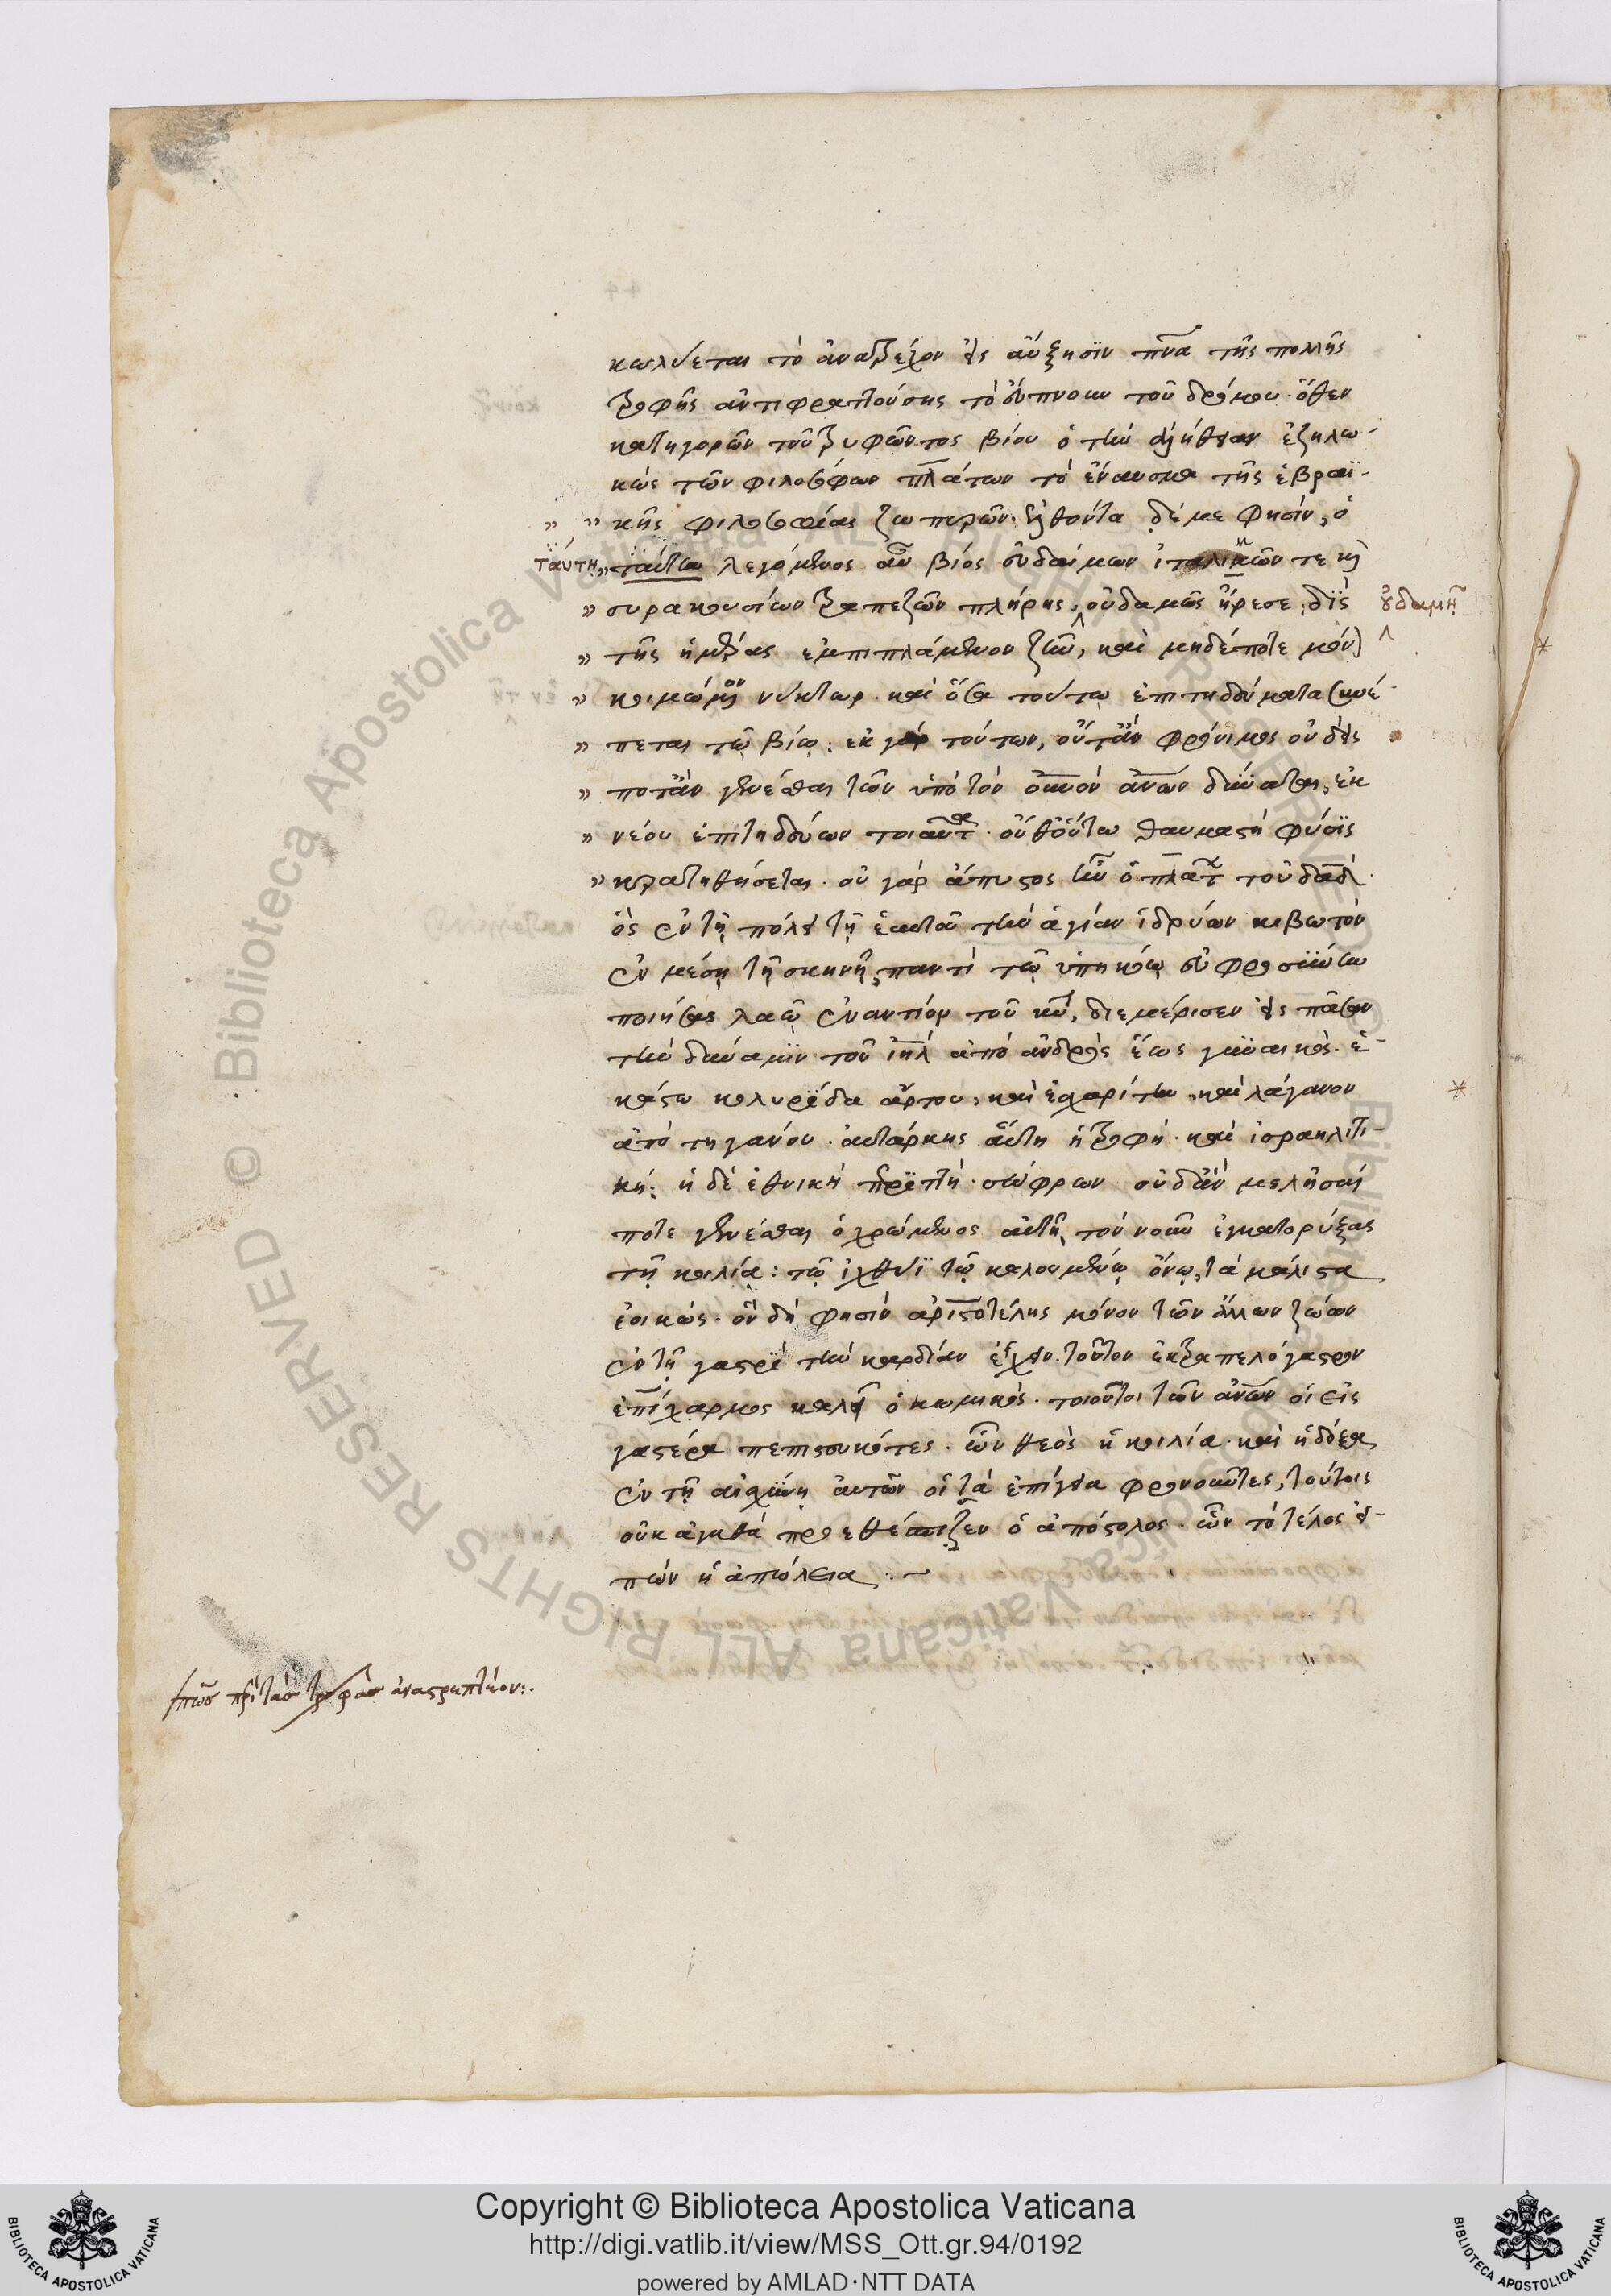 κωλύεται τὸ ἀνατρέχον εἰς αὔξησϊν πν̅α τῆς πολλῆς
τροφῆς ἀντιφραττούσης τὸ εὔπνουν τοῦ δρόμου · ὅθεν
κατηγορῶν τοῦ τρυφῶντος βίου ὁ τὴν ἀλήθειαν ἐζηλω-
κὼς τῶν φιλοσόφων πλάτων τὸ ἔναυσμα τῆς ἑβραϊ-
„ „ κῆς φιλοσοφίας ζωπυρῶν · ἐλθόντα δέ με φησίν, ὁ
ταύτῃ „ ταύτην λεγόμενος αὖ βίος εὐδαίμων ἰταλικῶν τε κ̀
„ συρακουσίων τραπεζῶν πλήρης, οὐδαμῶς ἤρεσε · δὶς οὐδαμῆ
„ τῆς ἡμέρας ἐμπιπλάμενον ζῆν, καὶ μηδέποτε μόν
„ κοιμώμενον νύκτωρ · καὶ ὅσα τούτῳ ἐπιτηδεύματα συνέ-
„ πεται τῷ βίῳ : ἐκ γὰρ τούτων, οὔτ' ἂν φρόνιμος οὐδείς
„ ποτ' ἂν γενέσθαι τῶν ὑπὸ τὸν οὐνὸν ἀνων δύναιτο, ἐκ
„ νέου ἐπιτηδεύων τοιαῦτα · οὐθ' οὕτω θαυμαστὴ φύσϊς
„ κραθήσεται · οὐ γὰρ ἄπυστος ἦν ὁ πλάτ τοῦ δαδ ·
ὃς ἐν τῇ πόλει τῇ ἑαυτοῦ τὴν ἁγίαν ἱδρύων κιβωτὸν
ἐν μέσῃ τῇ σκηνῇ, παντὶ τῷ ὑπηκόῳ εὐφροσύνην
ποιήσας λαῷ ἐναντίον τοῦ κυ, διεμέρισεν εἰς πᾶσαν
τὴν δύναμϊν τοῦ ιηλ ἀπὸ ἀνδρὸς ἕως γυναικὸς · ἑ-
κάστῳ κολυρίδα ἄρτου, καὶ ἐσχαρίτην, καὶ λάγανον
ἀπὸ τηγάνου · αὐτάρκης αὕτη ἡ τροφὴ · καὶ ἰσραηλιτι-
κή : ἡ δὲ ἐθνικὴ περιττή · σώφρων οὐδ' ἂν μελλήσαι
ποτὲ γενέσθαι ὁ χρώμενος αὐτῇ, τὸν νοῦν ἐγκατορύξας
τῇ κοιλίᾳ : τῷ ἰχθύϊ τῷ καλουμένῳ ὄνῳ, τὰ μάλιστα
ἐοικώς · ὃν δή φησιν ἀριστοτέλης μόνον τῶν ἄλλων ζώων
ἐν τῇ γαστρὶ τὴν καρδίαν ἔχειν · τοῦτον ἐκτραπελόγαστρον
ἐπίχαρμος καλεῖ ὁ κωμικός · τοιοῦτοι τῶν ἀνων οἱ εἰς
γαστέρα πεπιστευκότες · ὧν θεὸς ἡ κοιλία · καὶ ἡ δόξα
ἐν τῇ αἰσχύνῃ αὐτῶν οἱ τὰ ἐπίγεια φρονοῦντες, τούτοις
οὐκ ἀγαθὰ προεθέσπιζεν ὁ ἀπόστολος · ὧν τὸ τέλος εἰ-
πὼν ἡ ἀπώλεια : ~
πῶσ περὶ τὰσ τροφὰσ ἀναστρεπτέον : ·
Copyright © Biblioteca Apostolica Vaticana
http://digi.vatlib.it/view/MSS_Ott.gr.94/0192
powered by AMLAD·NTT DATA